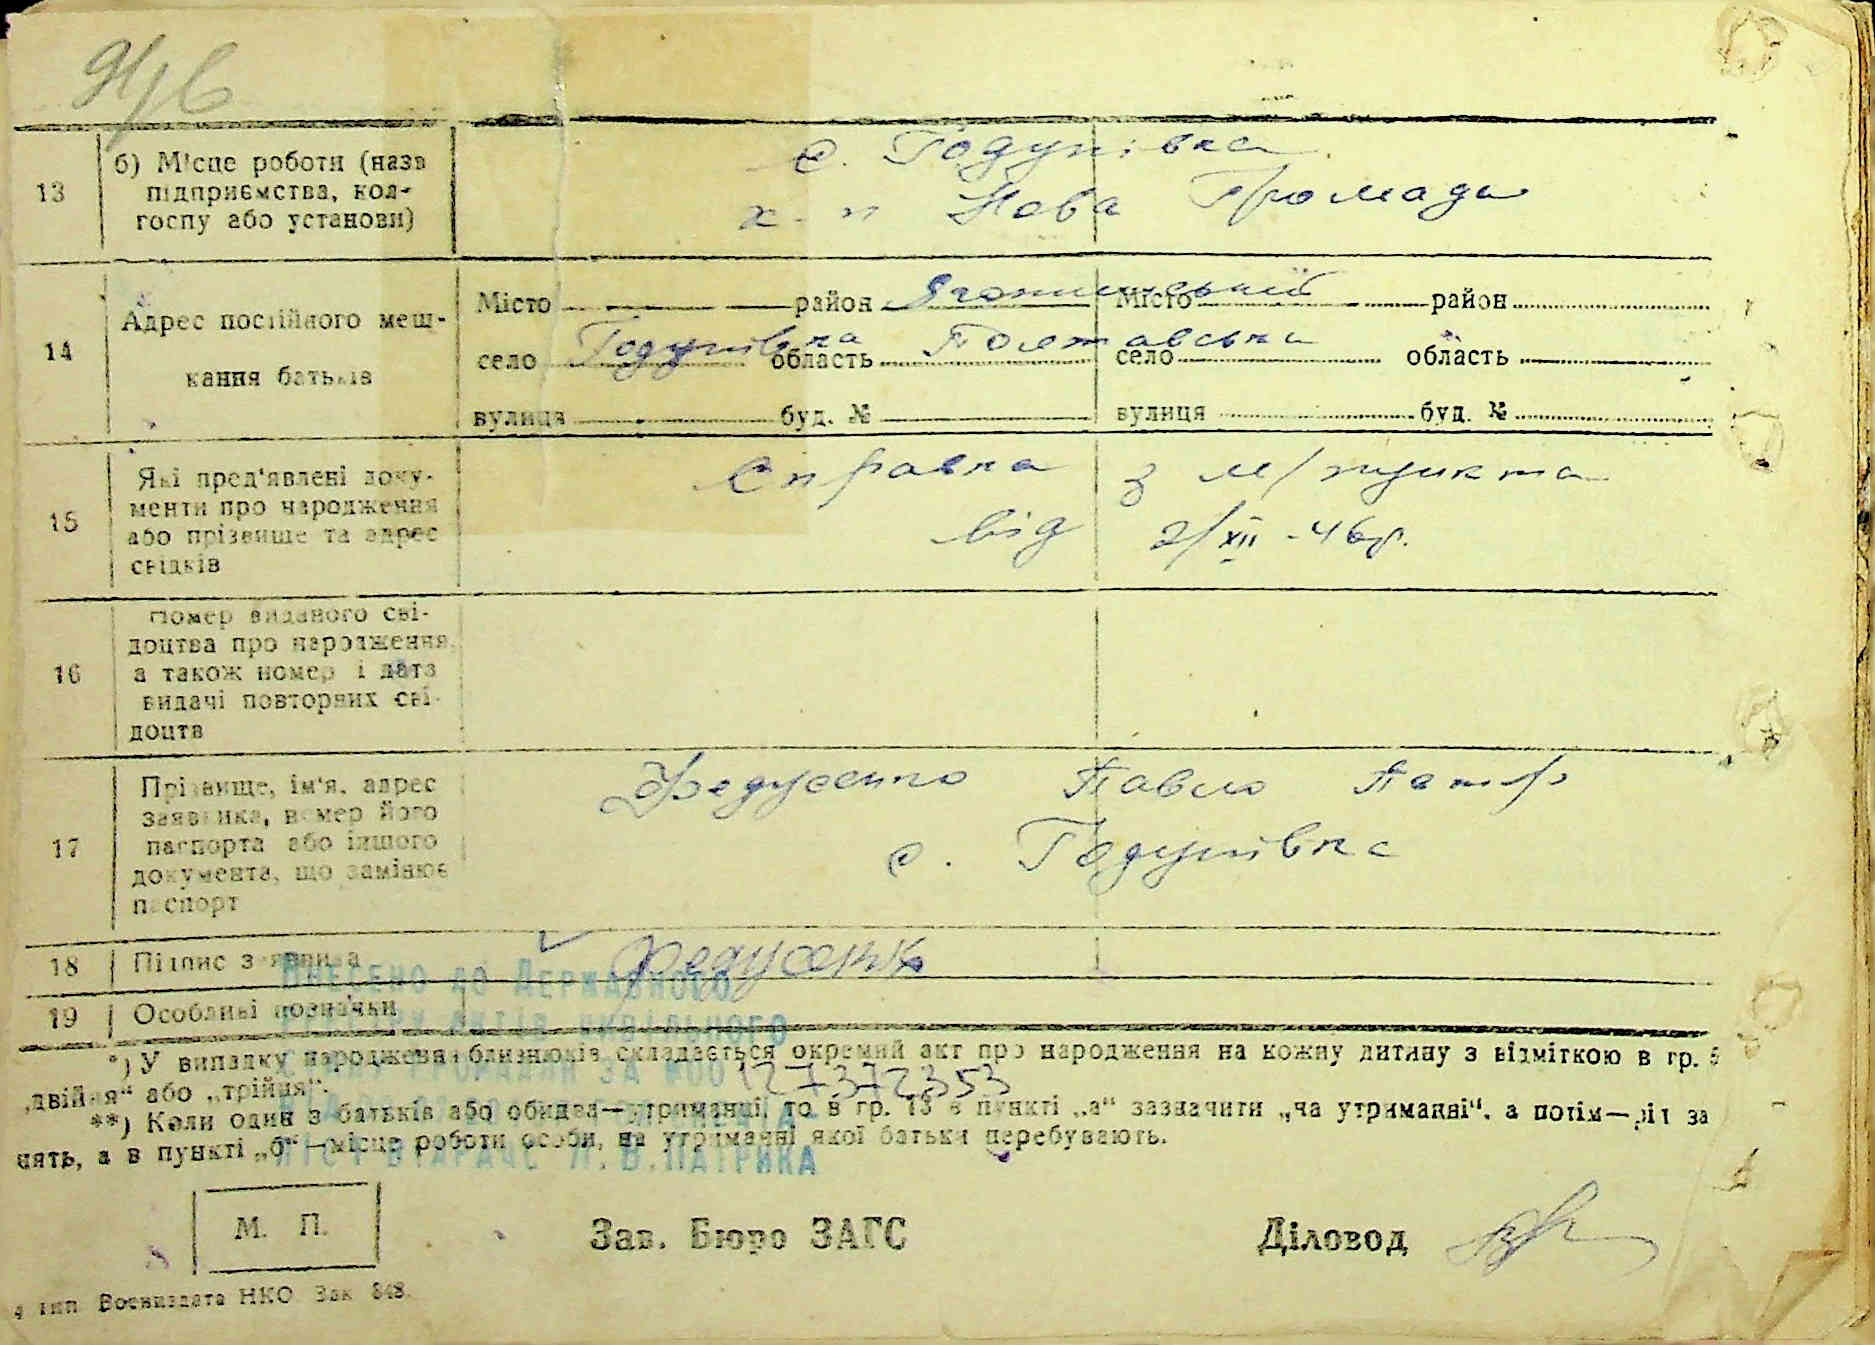 13 б) Місце роботи (назв
підприємства, кол-
госпу або установи)
с. Годунівка
к-п Нова Громада
14 Адрес постійного меш-
кання батьків
Місто район Яготинський Місто район
село Годунівка область Полтавська село область
вулиця буд. № вулиця буд. №
15 Які пред'явлені доку-
менти про народження
або прізвище та адрес
свідків
Справка з м/пункта
від 2/XII - 46 р.
16 Номер виданого сві-
доцтва про народження,
а також номер і дата
видачі повторних сві-
доцтв
17 Прізвище, ім'я, адрес
заявника, номер його
паспорта або іншого
документа, що замінює
паспорт
Федусенко Павло Петр
с. Годунівка
18 Підпис заявника Федусенко
19 Особливі позначки
Внесено до Державного
цивільного
громадян за №00 127372353
*) У випадку народження близнюків складається окремий акт про народження на кожну дитину з відміткою в гр. 5
„двійня“ або „трійня“.
**) Коли один з батьків або обидва—утриманці, то в гр. 13 в пункті „а“ зазначити „на утриманні“, а потім—рід за
нять, а в пункті „б“—місце роботи особи, на утриманні якої батьки перебувають.
Л.В.Патрика
М. П. Зав. Бюро ЗАГС Діловод
4 тип Воениздата НКО Зак 848.